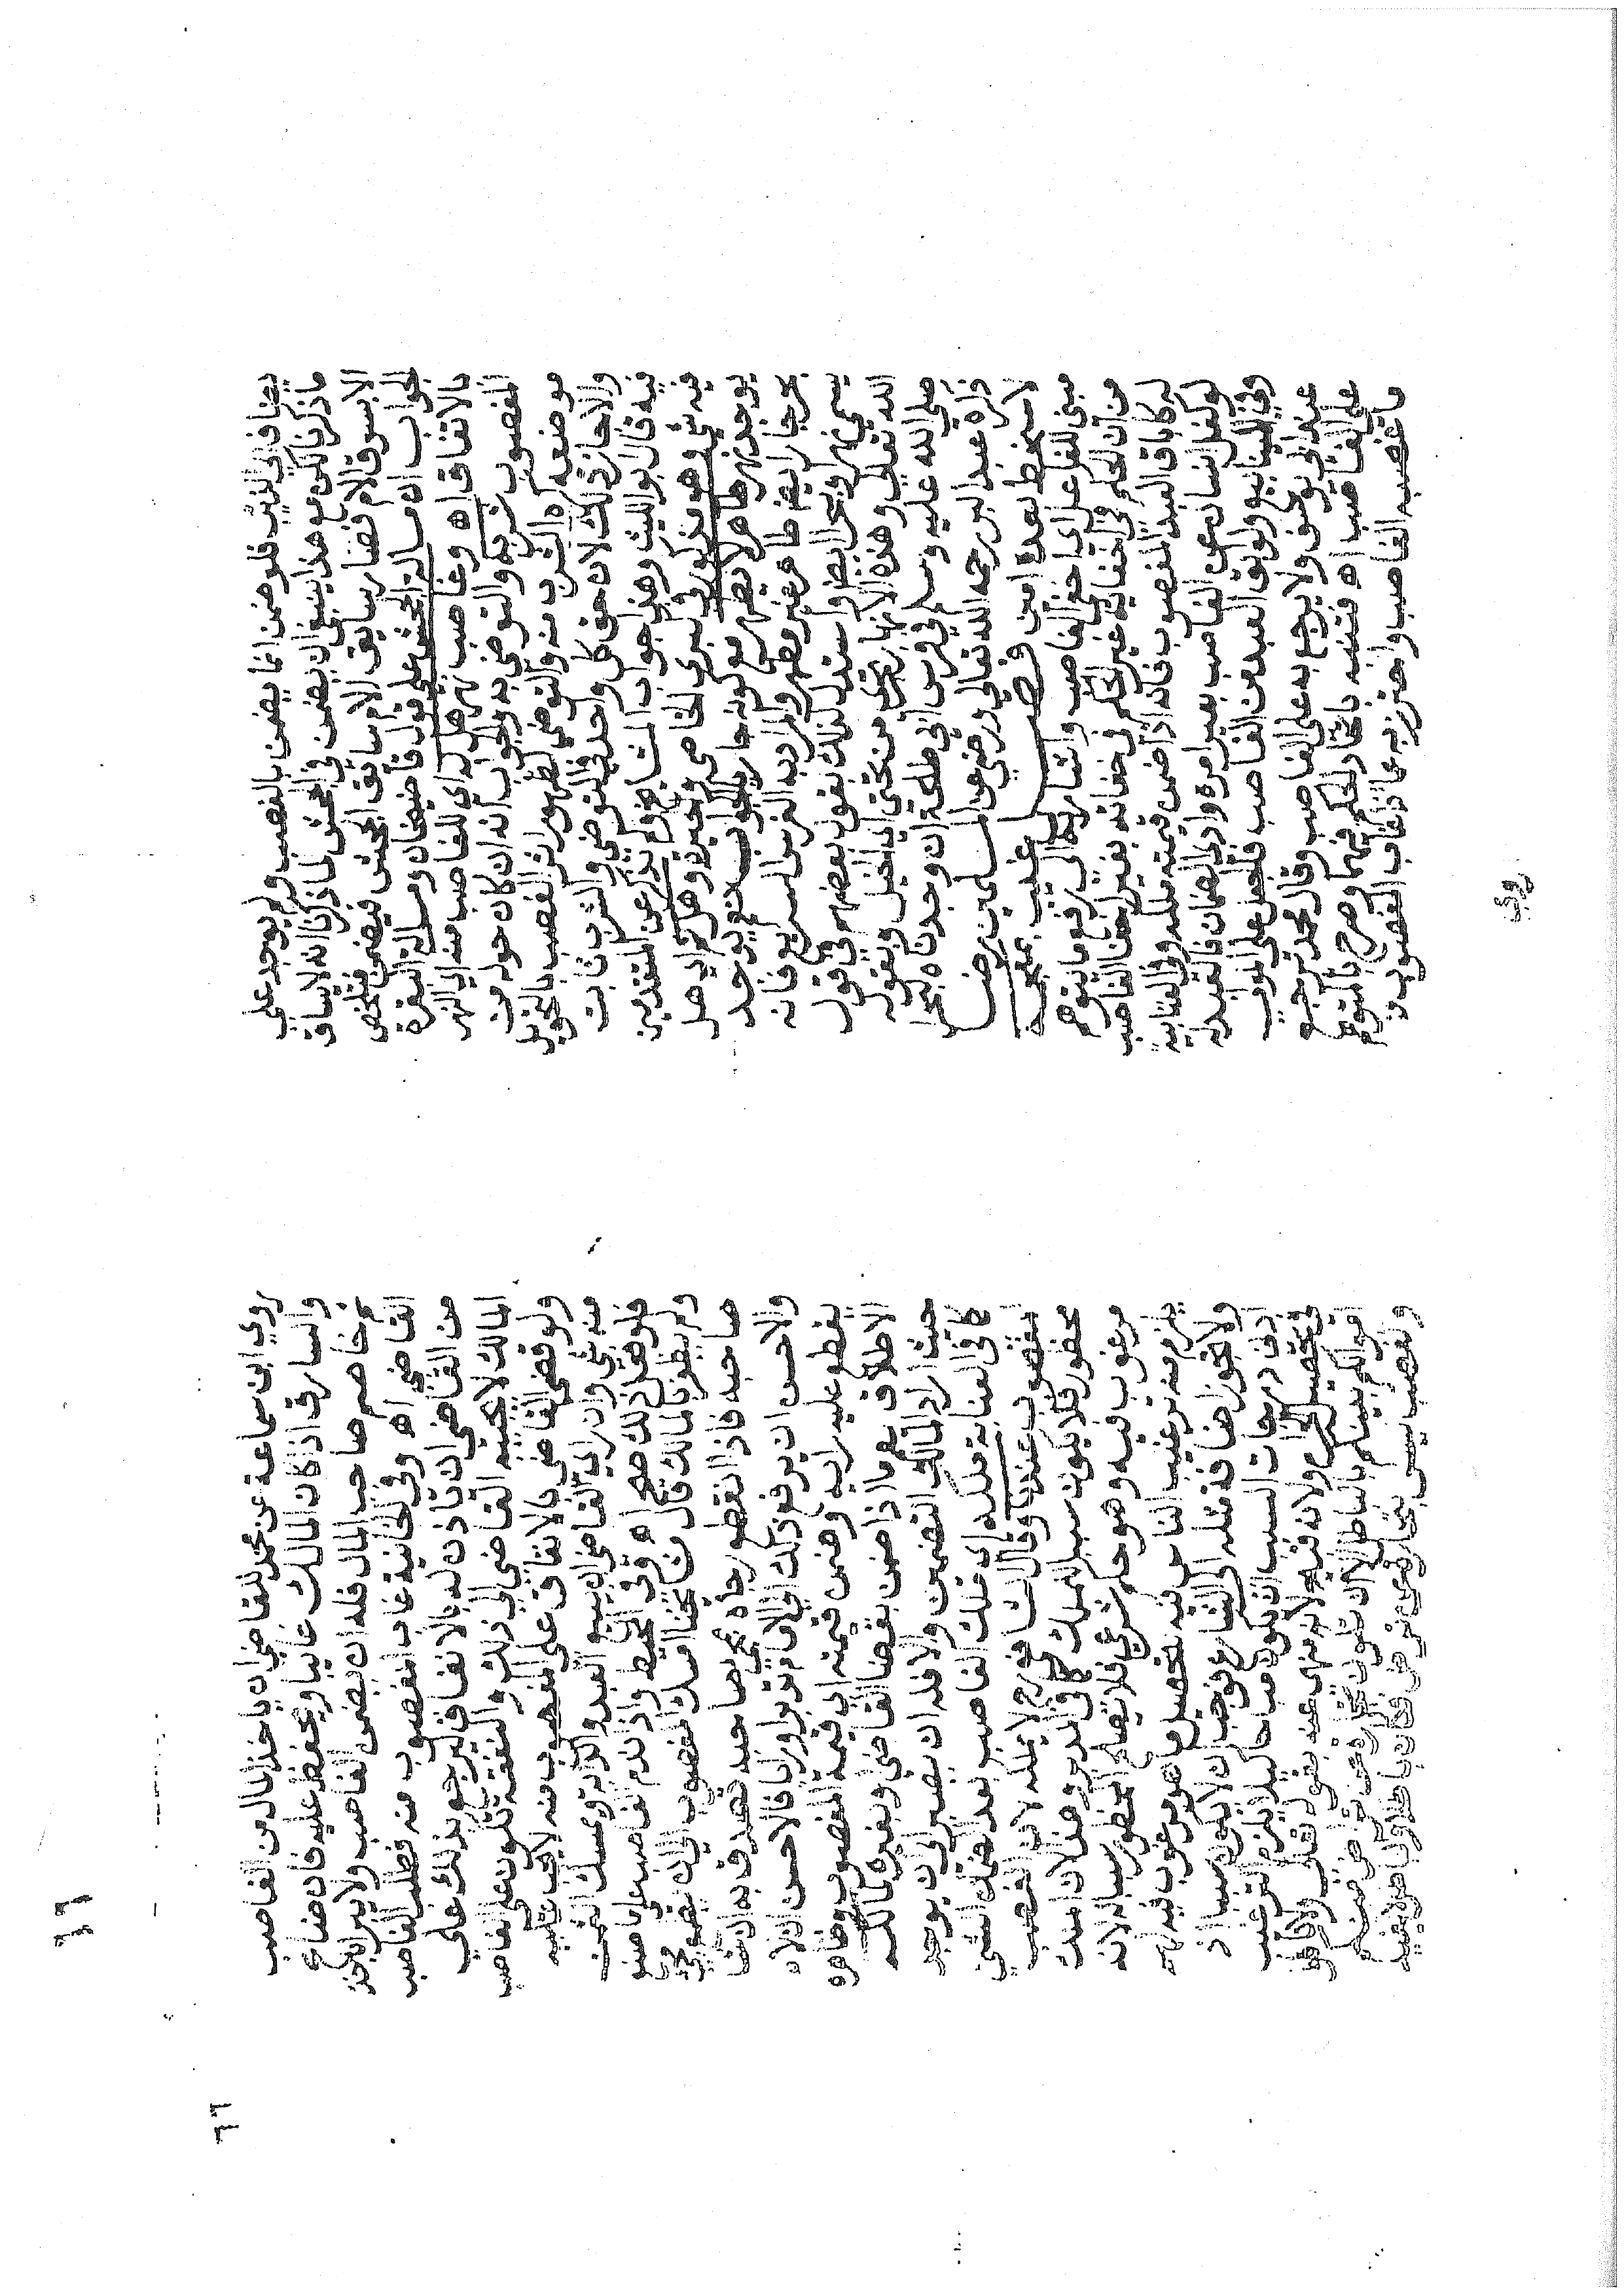 يضاف الى الغير فلو ضمن انما يضمن بالغصب ولم يوجد على
ما ذكرنا لكن مع هذا ينبغي ان يضمن في الجحش لما ذكرنا انه لا يساق
الا بسوق الام فصار سايق الام سايق الجحش فيضمن فتلخص
الجواب ان مسالة الجحش على قول قاضيخان ومسالة البقرة
بالاتفاق اه وغاصب نهر هل له اي للغاصب منه اي النهر
المغصوب شربه والتوضي به والجواب انه ان كان حوله من
موضعه كره الشرب منه والتوضي لظهور اثر الغصب بالتحويل
والا جاز ذلك لان حق كل واحد في التوضي والشرب ثابت
فيه قال ابو الليث وهذا جواب المشايخ ولم يذكر عن المتقدمين
فيه شي وهو مذكور في الخاصي وغيره وهل ثم اي هل
يوجد نهر طاهر لا يطهر مع كونه جاريا والجواب نعم يوجد
بحر جار ايضا طاهر غير مطهر والمراد به الفرس السريع فانه
يسمى نهرا وبحرا ايضا واستدل لذلك بقول بعضهم في قول
الله تعالى وهذه الانهار تجري من تحتي اي الخيل وبقوله
صلى الله عليه وسلم في فرس ابي طلحة ان وجدناه لبحرا
ذكره عبد البر رحمه الله تعالى ورضي عن المسلمين رضا
لا سخط بعده امين فصـــل غيب بمعجمة
مبني للفاعل اي اخفى الغاصب واشار به الى رفع ما يتوهم
من ان الحكم في اخفايه غير الحكم في خفائه بغير اخفا الغاصب
له كاباق العبد المغصوب فانه اذا ضمن قيمته ملكه وفي العنابيه
لو كفل انسان عن الغاصب بغير امره وادى الضمان فالعبد له
وفي الينابيع ولو ابق العبد من الغاصب فالجعل على المولى
عند ابي يوسف ولا يرجع به على الغاصب وقال محمد يرجع
على الغاصب اه فتنبه باتحاد الحكم فيهما وصرح بالمتوهم
ما غصبه الغاصب واحترز به عما اذا غاب المغصوب
روى
روي ابن سماعة عن محمد للقاضي ان ياخذ المال من الغاصب
والسارق اذا كان المالك غايبا ويحفظ عليه فان ضاع
ثم خاصم صاحب المال فله ان يضمن الغاصب ولا يبرا باخذ
القاضي اه وفي الخانية غاب المغصوب منه فطلب الغاصب
من القاضي ان ياذن له بالانفاق ليرجع بذلك على
المالك لا يجيبه القاضي الى ذلك والنفقة تكون على الغاصب
ولو قضى القاضي بالانفاق على المغصوب منه لا يجب عليه
منه شي وان راى القاضي ان يبيع العبد او الدابة ويمسك الثمن
فلو فعل ذلك صح اه وفي المحيط واذا قدم الغاصب على ما صنع
ولم يظفر بالمالك قال مشايخنا امسك المغصوب الى ان يتصور مجي
صاحبه فاذا انقطع رجاه مجي صاحبه تصدق به ان شا
والاحسن ان يرفع ذلك الى الامام تدبرا ورايا فالاحسن ان لا
يقطع عليه رايه وضمن قيمته اي قيمة المغصوب وظاهره
الاطلاق يعم ما اذا ضمن بقضا القاضي وبغيره لمالكه
حيث اراد المالك التضمين والا فله ان يصبر الى ان يوجد
كما في العناية ملكه اي ملك الغاصب بعد الضمان الشي
المغصوب عندنا وقال الشافعي رح لا يملكه لان الغصب
محظور فلا يكون سبب الملك كما في المدبر وهذا لان الملك
مرغوب فيه وهو حكم شرعي فلا يصلح المحظور سببا له لانه
يلزم منه ترغيب الناس فيه لتحصيل ما هو مرغوب فيه لهم
ولا تجوز اضافة مثله الى الشارع فوجب ان لا يكون سببا اذ
ادنى درجات السبب ان يكون مباحا كيلا يلزم الترغيب
في تحصيل المحرم ولانه قبيح لانه نهى عنه بقوله تعالى ولا تاكلوا
اموالكم بينكم بالباطل الا ان تكون تجارة عن تراض منكم
والغصب ليس بتجارة عن تراض فكان باطلا والباطل لا يفيد
٦٦
٦٦